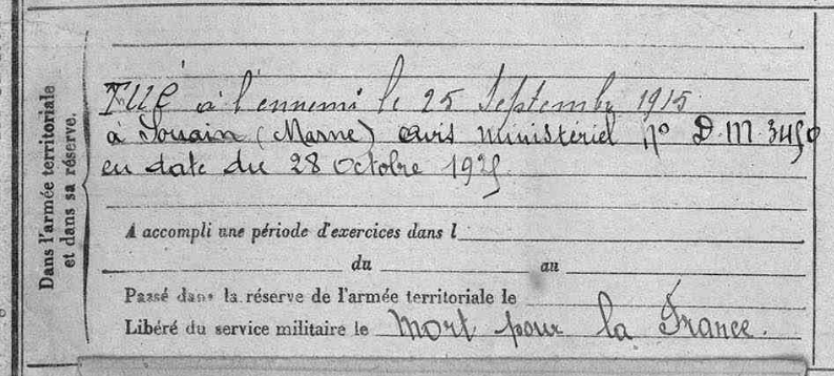 Dans l'armée territoriale
et dans sa réserve.
Tué à l'ennemi le 25 Septembre 1915
à Souain (Marne) avis ministériel n° D.M. 3450
en date du 28 octobre 1925
A accompli une période d'exercices dans l
du au
Passé dans la réserve de l'armée territoriale le
Libéré du service militaire le Mort pour la France.